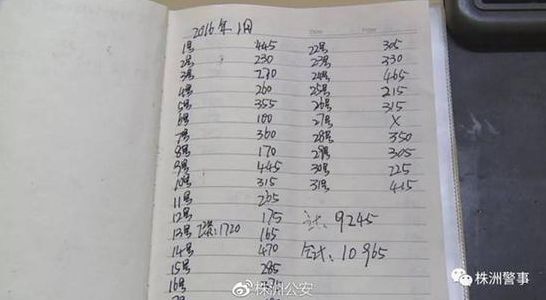 2016年1月
1号 445
2号 230
3号 230
4号 260
5号 355
6号 100
7号 360
8号 170
9号 445
10号 315
11号 265
12号 175
13号 1720 165
14号 470
15号 285
16号
22号 305
23号 330
24号 465
25号 215
26号 315
27号 X
28号 350
29号 305
30号 225
31号 415
9245
10965
@株洲公安
株洲警事